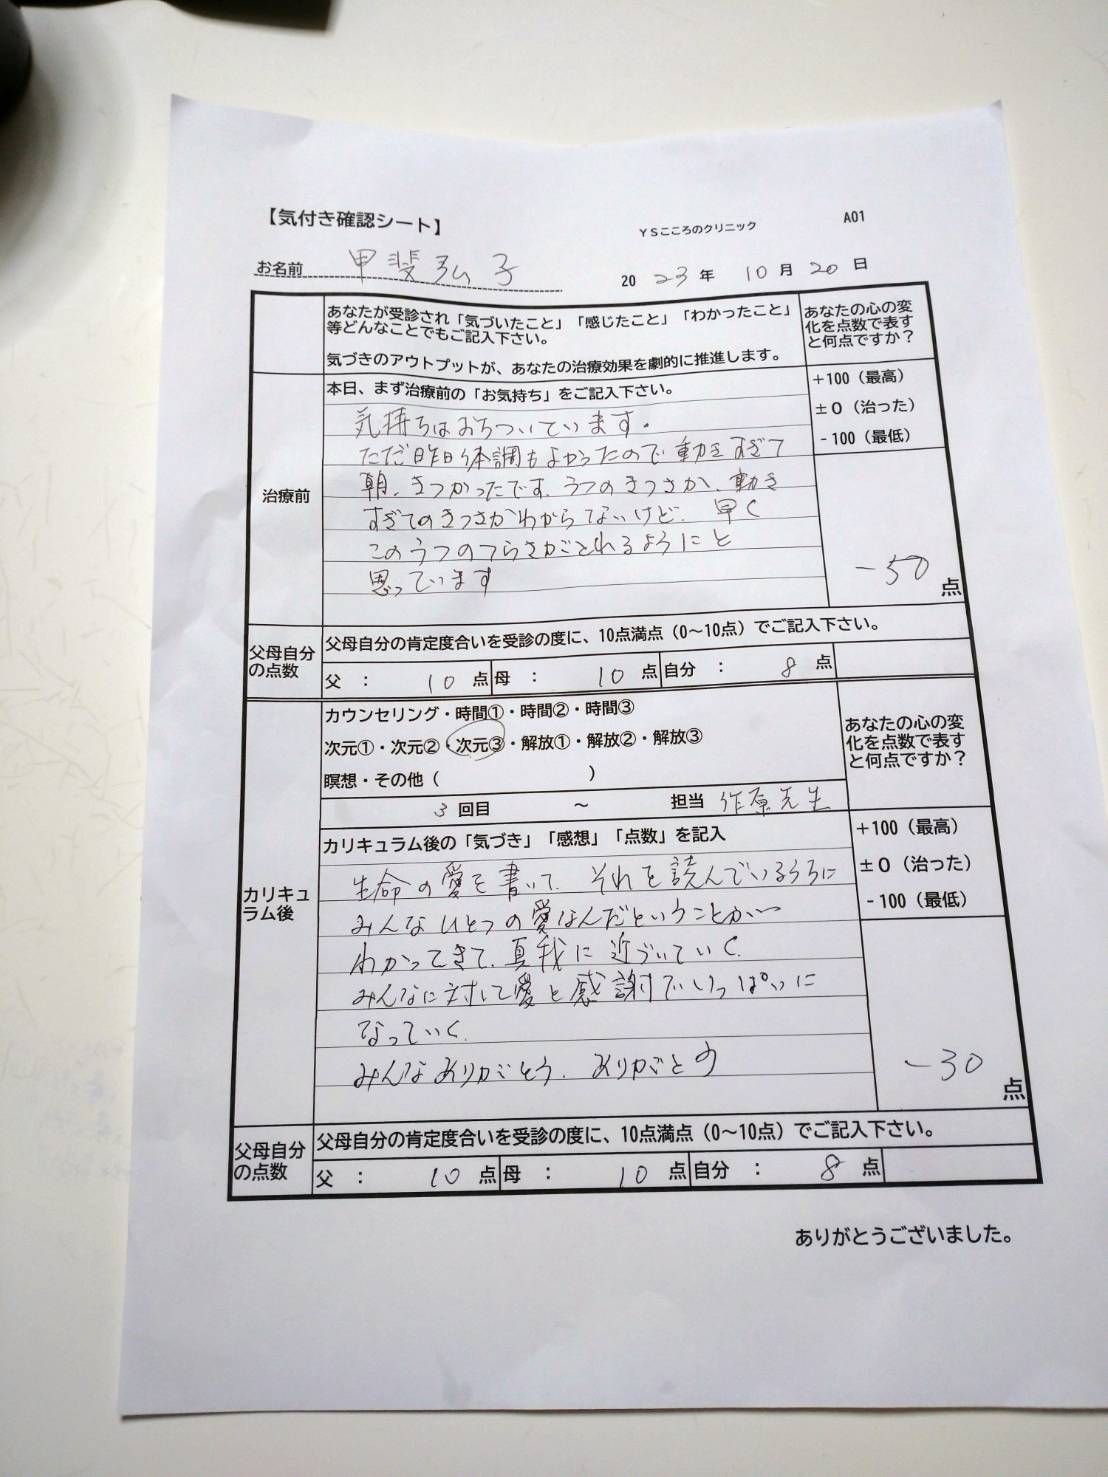 【気付き確認シート】
YSこころのクリニック
A01
お名前 甲斐弘子
2023年10月20日
あなたが受診され「気づいたこと」「感じたこと」「わかったこと」
等どんなことでもご記入下さい。
気づきのアウトプットが、あなたの治療効果を劇的に推進します。
あなたの心の変
化を点数で表す
と何点ですか？
治療前
本日、まず治療前の「お気持ち」をご記入下さい。
+100（最高）
±0（治った）
-100（最低）
気持ちはおちついています。
ただ昨日体調もよかったので動きすぎて
朝、きつかったです。うつのきつさか、動き
すぎてのきつさかわからないけど、早く
このうつのつらさがとれるようにと
思っています
-50点
父母自分
の点数
父母自分の肯定度合いを受診の度に、10点満点（0〜10点）でご記入下さい。
父 ： 10 点 母 ： 10 点 自分 ： 8 点
カリキュ
ラム後
カウンセリング・時間①・時間②・時間③
次元①・次元②・次元③・解放①・解放②・解放③
瞑想・その他（ ）
3 回目 〜 担当 作原先生
あなたの心の変
化を点数で表す
と何点ですか？
カリキュラム後の「気づき」「感想」「点数」を記入
+100（最高）
±0（治った）
-100（最低）
生命の愛を書いて、それを読んでいるうちに
みんなひとつの愛なんだということが
わかってきて、真我に近づいていく。
みんなに対して愛と感謝でいっぱいに
なっていく。
みんなありがとう、ありがとう
-30点
父母自分
の点数
父母自分の肯定度合いを受診の度に、10点満点（0〜10点）でご記入下さい。
父 ： 10 点 母 ： 10 点 自分 ： 8 点
ありがとうございました。